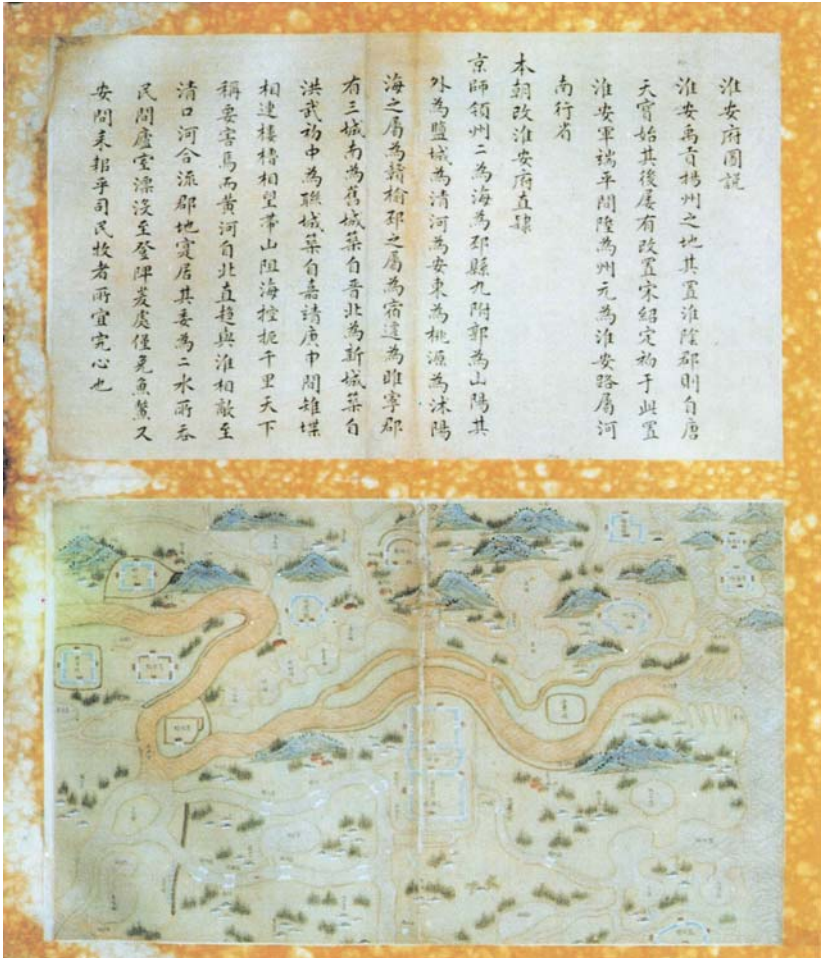 淮安府圖說
淮安禹貢揚州之地其置淮陰郡則自唐
天寶始其後屡有改置宋紹定初于此置
淮安軍端平間陞為州元為淮安路屬河
南行省
本朝改淮安府直隸
京師領州二為海為邳縣九附郭為山陽其
外為鹽城為清河為安東為桃源為沭陽
海之屬為贛榆邳之屬為宿遷為睢寧郡
有三城南為舊城築自晉北為新城築自
洪武初中為聯城築自嘉靖庚申間雉堞
相連樓櫓相望帶山阻海控扼千里天下
稱要害焉而黄河自北直趨與淮相敵至
清口河合流郡地寔居其委為二水所吞
民間廬室漂沒至登陴爰處僅免魚鱉又
安問耒耜乎司民牧者所宜究心也